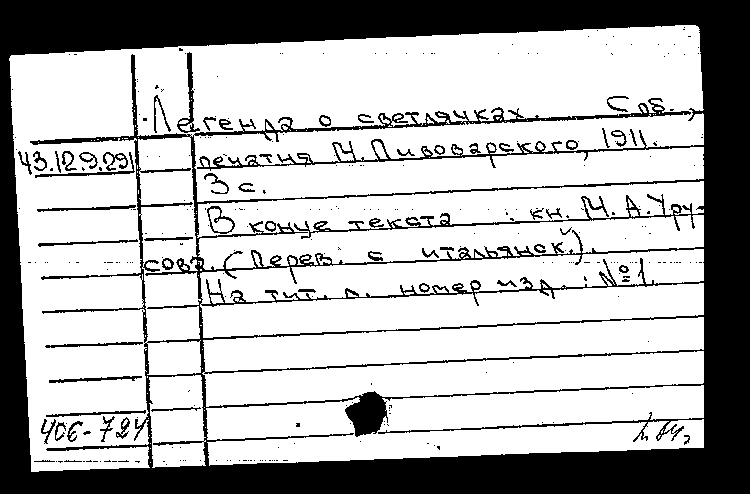 Легенда о светлячках. Спб.,
43.12.9.291 печатня М. Пивоварского, 1911.
3 с.
В конце текста : кн. М. А. Уру-
сова. (Перев. с итальянск.).
На тит. л. номер изд. : №1.
406-724